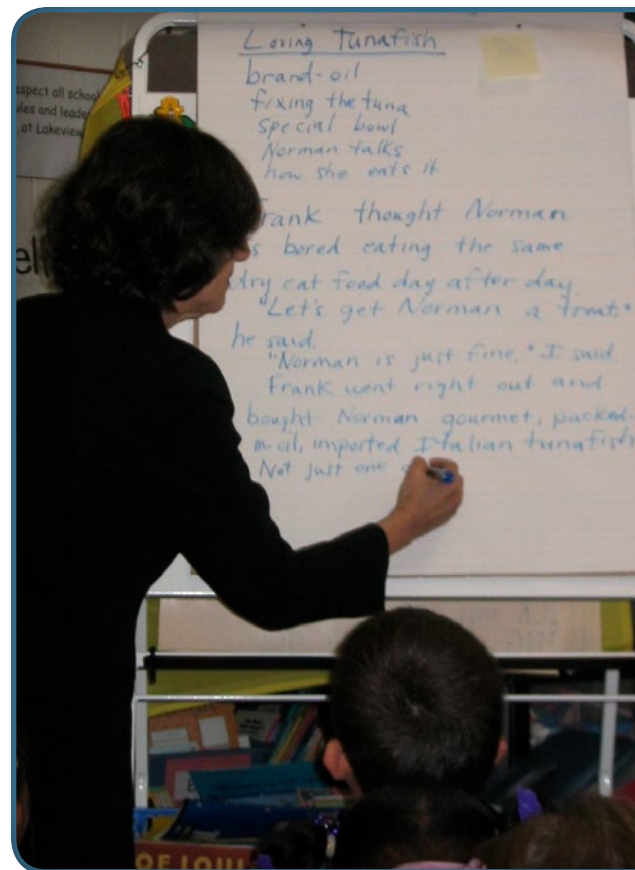 Loving Tunafish
brand-oil
fixing the tuna
special bowl
Norman talks
how she eats it
Frank thought Norman
bored eating the same
dry cat food day after day.
"Let's get Norman a treat,"
he said.
"Norman is just fine," I said.
Frank went right out and
bought Norman gourmet, packed-
in-oil, imported Italian tunafish
Not just one
spect all school
ules and leade
at Lakeview
OF LOUI